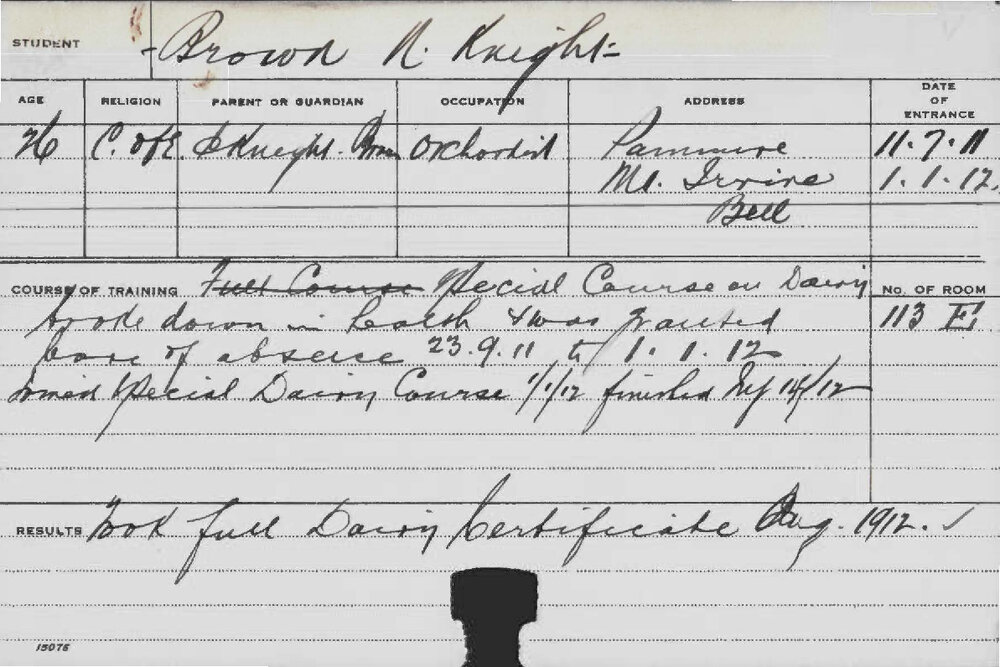 STUDENT - Brown N. Knight -
AGE RELIGION PARENT OR GUARDIAN OCCUPATION ADDRESS DATE OF ENTRANCE
26 C. of E. Knight-Brown Orchardist Panmure 11.7.11
Mt. Irvine 1.1.12.
Bell
COURSE OF TRAINING Full Course Special Course on Dairy No. OF ROOM
broke down in health & was granted 113 E
leave of absence 23.9.11 to 1.1.12
Joined Special Dairy Course 1/1/12 finished
RESULTS Took full Dairy Certificate Aug. 1912. ✓
15076